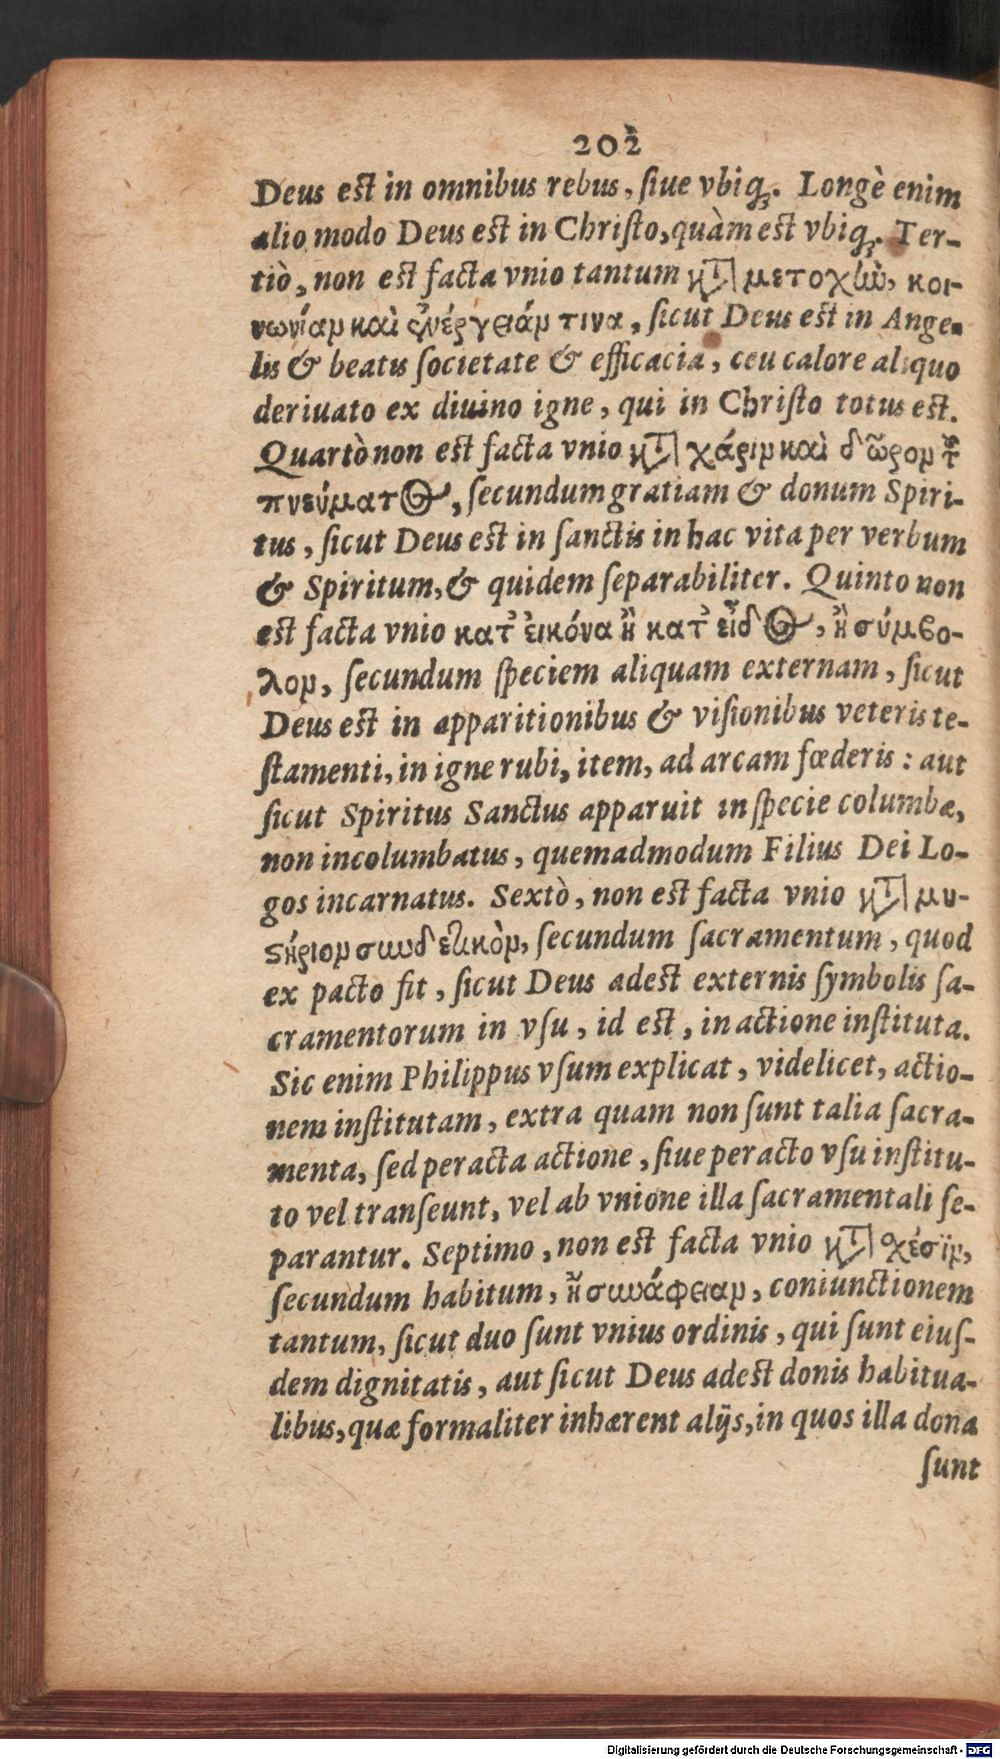 202
Deus est in omnibus rebus, siue vbiq;. Longè enim
alio modo Deus est in Christo, quàm est vbiq;. Ter-
tiò, non est facta vnio tantum κτ̃ μετοχὼ, κοι-
νωνίαν καὶ ἐνέργειάν τινα, sicut Deus est in Ange-
lis & beatis societate & efficacia, ceu calore aliquo
deriuato ex diuino igne, qui in Christo totus est.
Quartò non est facta vnio κτ̃ χάριν καὶ δῶρον τ̃
πνεύματος, secundum gratiam & donum Spiri-
tus, sicut Deus est in sanctis in hac vita per verbum
& Spiritum, & quidem separabiliter. Quinto non
est facta vnio κατ’ εἰκόνα ἢ κατ’ εἶδος, ἢ σύμβο-
λον, secundum speciem aliquam externam, sicut
Deus est in apparitionibus & visionibus veteris te-
stamenti, in igne rubi, item, ad arcam fœderis: aut
sicut Spiritus Sanctus apparuit in specie columbæ,
non incolumbatus, quemadmodum Filius Dei Lo-
gos incarnatus. Sextò, non est facta vnio κτ̃ μυ-
στήριον συνδετικὸν, secundum sacramentum, quod
ex pacto fit, sicut Deus adest externis symbolis sa-
cramentorum in vsu, id est, in actione instituta.
Sic enim Philippus vsum explicat, videlicet, actio-
nem institutam, extra quam non sunt talia sacra-
menta, sed peracta actione, siue peracto vsu institu-
to vel transeunt, vel ab vnione illa sacramentali se-
parantur. Septimo, non est facta vnio κτ̃ σχέσιν,
secundum habitum, ἢ συνάφειαν, coniunctionem
tantum, sicut duo sunt vnius ordinis, qui sunt eius-
dem dignitatis, aut sicut Deus adest donis habitua-
libus, quæ formaliter inhærent alijs, in quos illa dona
sunt
Digitalisierung gefördert durch die Deutsche Forschungsgemeinschaft - DFG